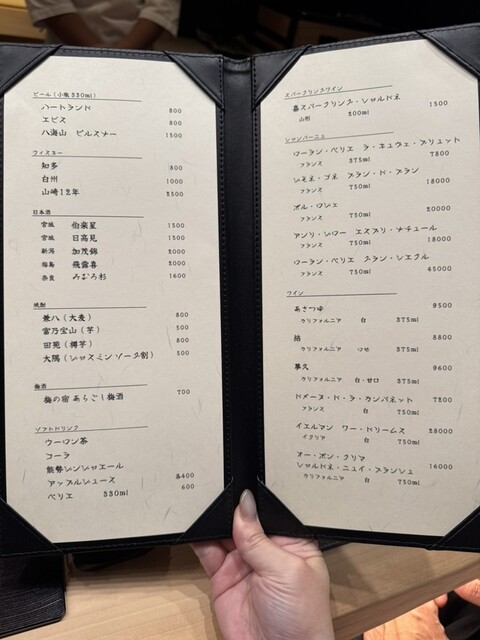 ビール(小瓶330ml)
ハートランド 800
エビス 800
八海山 ピルスナー 1500
ウィスキー
知多 800
白州 1000
山崎12年 2500
日本酒
宮城 伯楽星 1500
宮城 日高見 1500
新潟 加茂錦 2000
福島 飛露喜 2000
奈良 みむろ杉 1600
焼酎
兼八(大麦) 800
富乃宝山(芋) 500
田苑(樽芋) 800
大隅(ジャスミンソーダ割) 500
梅酒
梅の宿 あらごし梅酒 700
ソフトドリンク
ウーロン茶
コーラ
能勢ジンジャエール
アップルジュース 各400
ペリエ 330ml 600
スパークリングワイン
嘉スパークリング・シャルドネ 1500
山形 200ml
シャンパーニュ
ローラン・ペリエ ラ・キュヴェ・ブリュット
フランス 375ml 7800
シモネ・ゴネ ブラン・ド・ブラン
フランス 750ml 18000
ポル・ロジェ
フランス 750ml 20000
アンリ・ジロー エスプリ・ナチュール
フランス 750ml 18000
ローラン・ペリエ グラン・シエクル
フランス 750ml 45000
ワイン
あさつゆ 9500
カリフォルニア 白 375ml
結 8800
カリフォルニア ロゼ 375ml
夢久 9600
カリフォルニア 白・甘口 375ml
ドメーヌ・ド・ラ・ダンバネット 7200
フランス 白 750ml
イエルマン ワー・ドリームス 28000
イタリア 白 750ml
オー・ボン・クリマ
シャルドネ・ニュイ・ブランシュ 16000
カリフォルニア 白 750ml